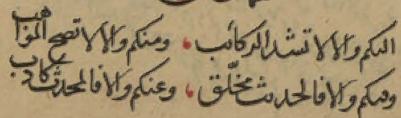 اليكم والا لا تشد الركائب ، ومنكم والا لا تصح المواهب
وفيكم والا فالحديث مخلّق ، وعنكم والا فالمحدث كاذب